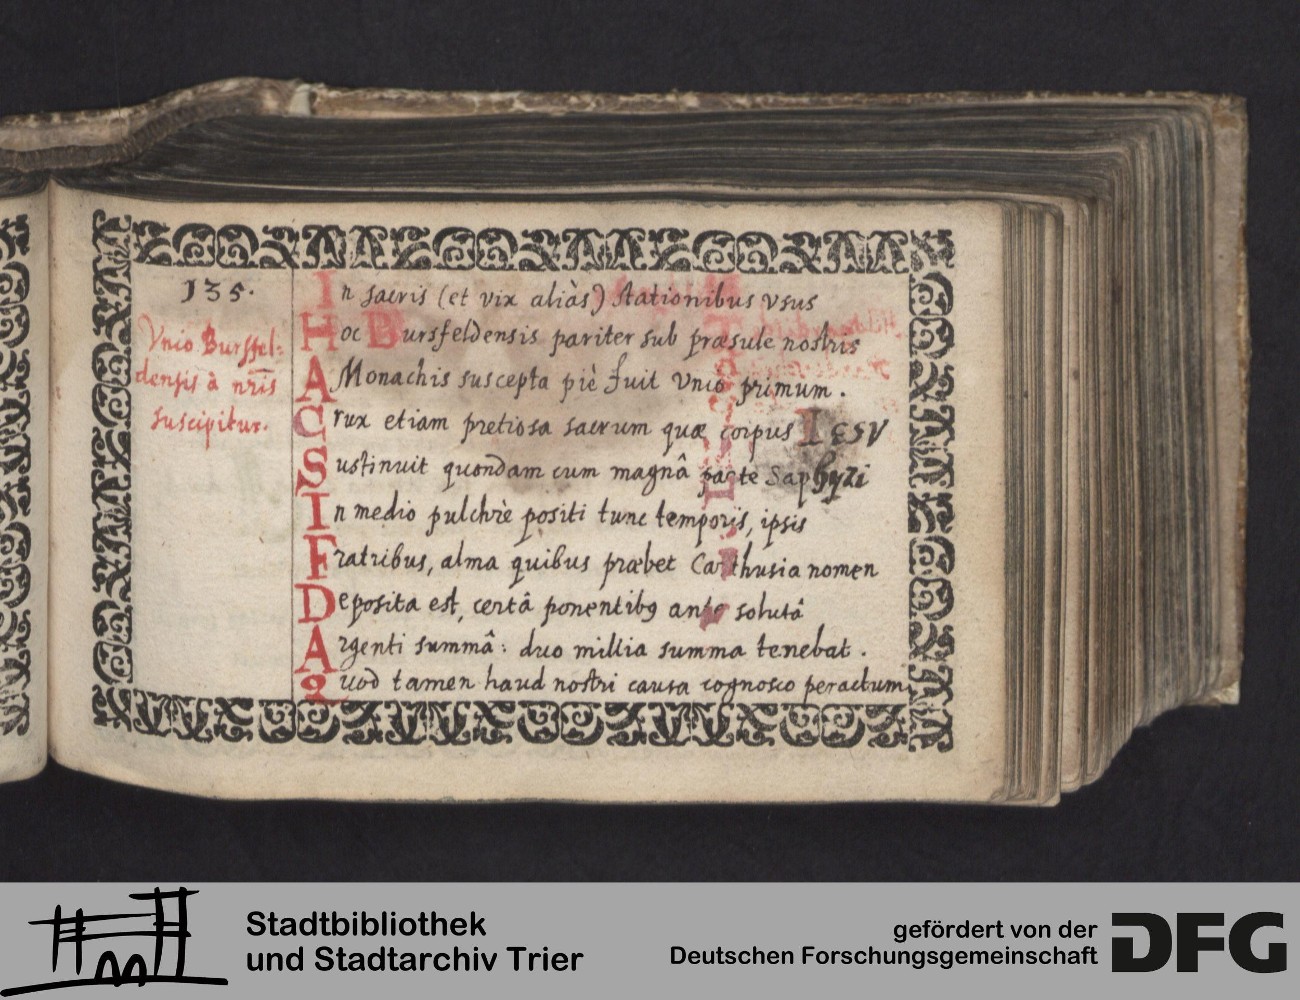 135.
Vnio Bursfel:
densis à nr̄is
suscipitur.
In sacris (et vix aliàs) stationibus vsus
Hoc Bursfeldensis pariter sub præsule nostris
A Monachis suscepta piè fuit Vnio primum.
Crux etiam pretiosa sacrum quæ corpus IESV
Sustinuit quondam cum magnâ parte Saphyri
In medio pulchrè positi tunc temporis, ipsis
Fratribus, alma quibus præbet Carthusia nomen
Deposita est, certâ ponentibꝰ ante solutâ
Argenti summâ: duo millia summa tenebat.
Quod tamen haud nostri causa cognosco peractum,
Stadtbibliothek
und Stadtarchiv Trier
gefördert von der
Deutschen Forschungsgemeinschaft
DFG